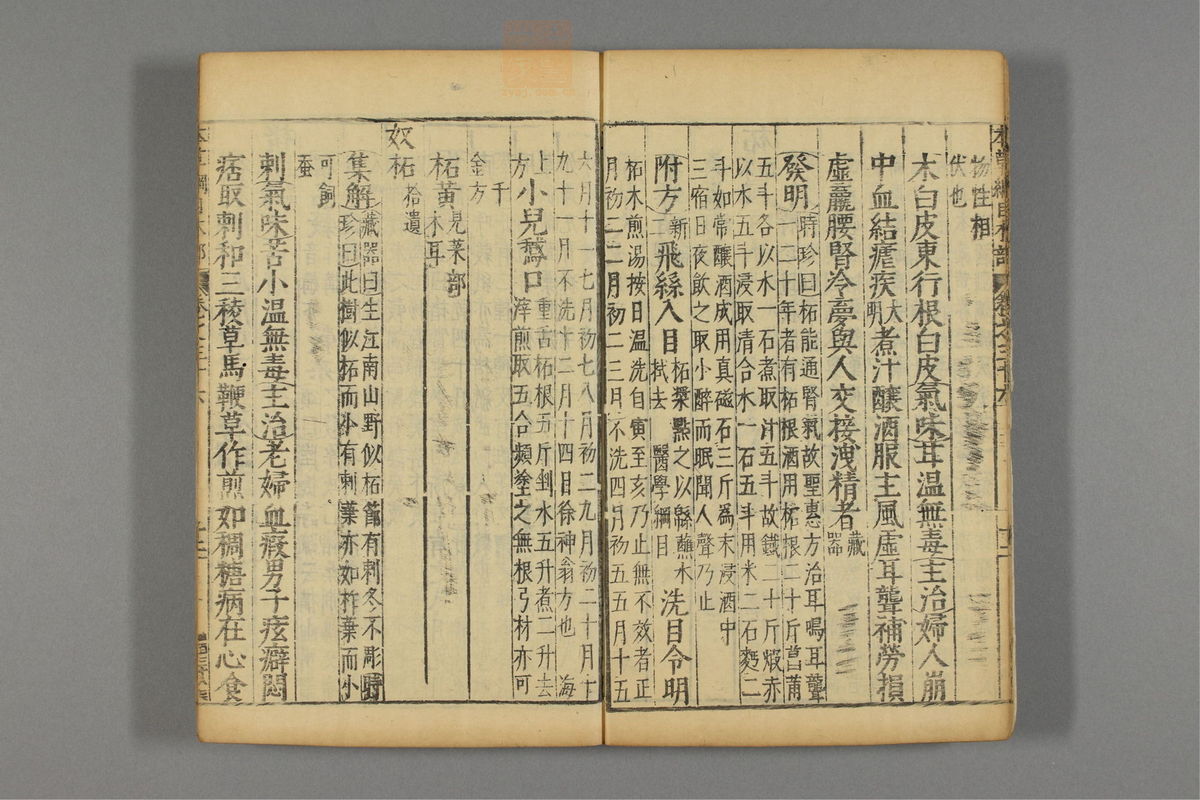 物性相
伏也
木白皮東行根白皮氣味甘溫無毒主治婦人崩
中血結瘧疾大明煮汁釀酒服主風虛耳聾補勞損
虛羸腰腎冷夢與人交接洩精者藏器
發明時珍曰柘能通腎氣故聖惠方治耳鳴耳聾
一二十年者有柘根酒用柘根二十斤菖蒲
五斗各以水一石煮取汁五斗故鐵二十斤煅赤
以水五斗浸取清合水一石五斗用米二石麴二
斗如常釀酒成用真磁石三斤為末浸酒中
三宿日夜飲之取小醉而眠聞人聲乃止
附方新二飛絲入目柘漿點之以綿蘸水拭去醫學綱目洗目令明
柘木煎湯按日溫洗自寅至亥乃止無不效者正
月初二二月初二三月不洗四月初五五月十五
六月十一七月初七八月初二九月初二十月十
九十一月不洗十二月十四日徐神翁方也海
上方小兒鵞口重舌柘根五斤剉水五升煮二升去
滓煎取五合頻塗之無根弓材亦可
千金方
柘黃見菜部木耳
奴柘拾遺
集解藏器曰生江南山野似柘節有刺冬不彫時
珍曰此樹似柘而小有刺葉亦如柞葉而小
可飼
蚕
刺氣味苦小溫無毒主治老婦血瘕男子痃癖悶
痞取刺和三稜草馬鞭草作煎如稠糖病在心食